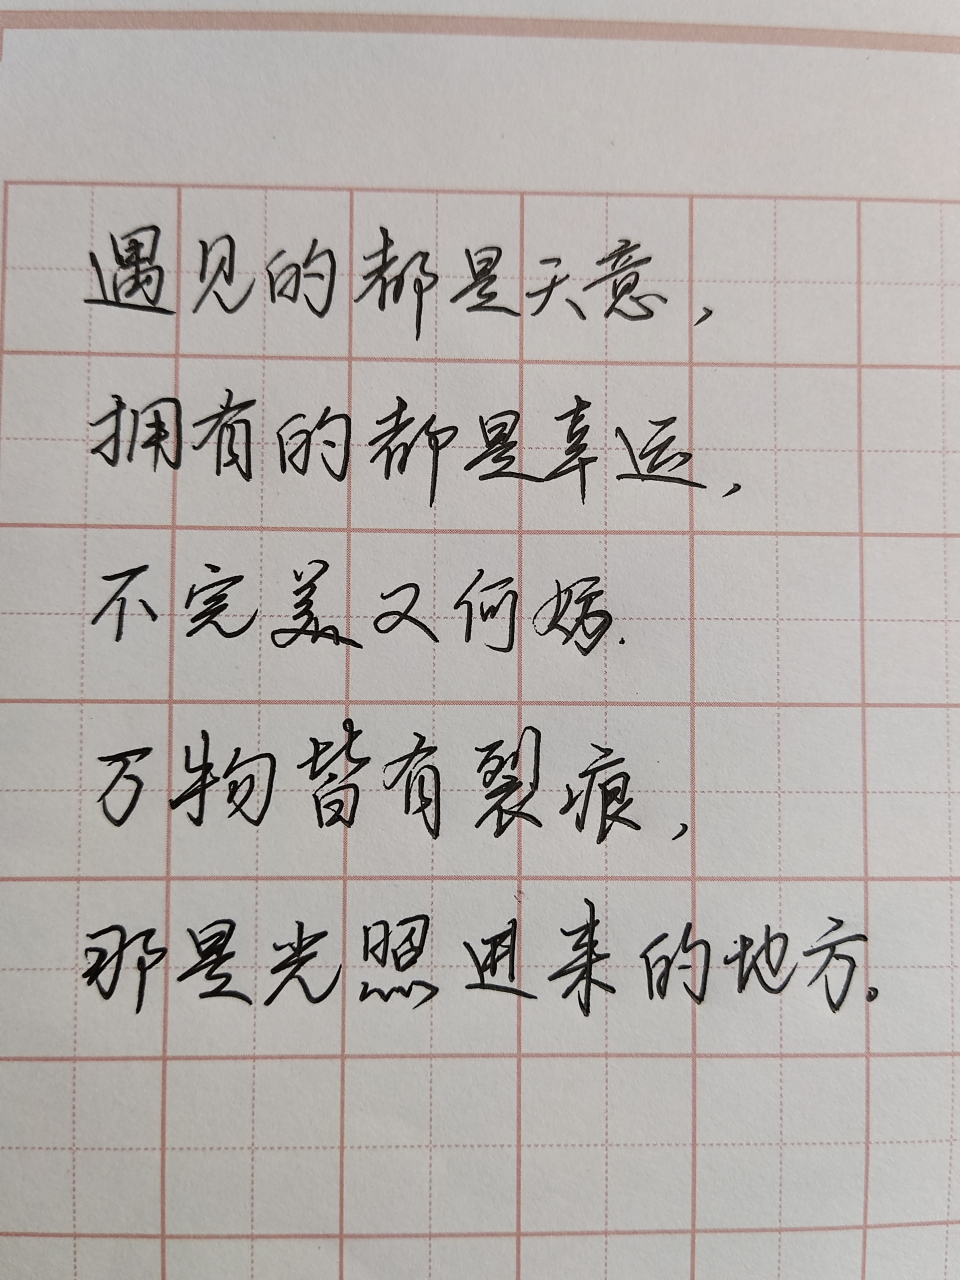 遇见的都是天意，
拥有的都是幸运，
不完美又何妨.
万物皆有裂痕，
那是光照进来的地方。